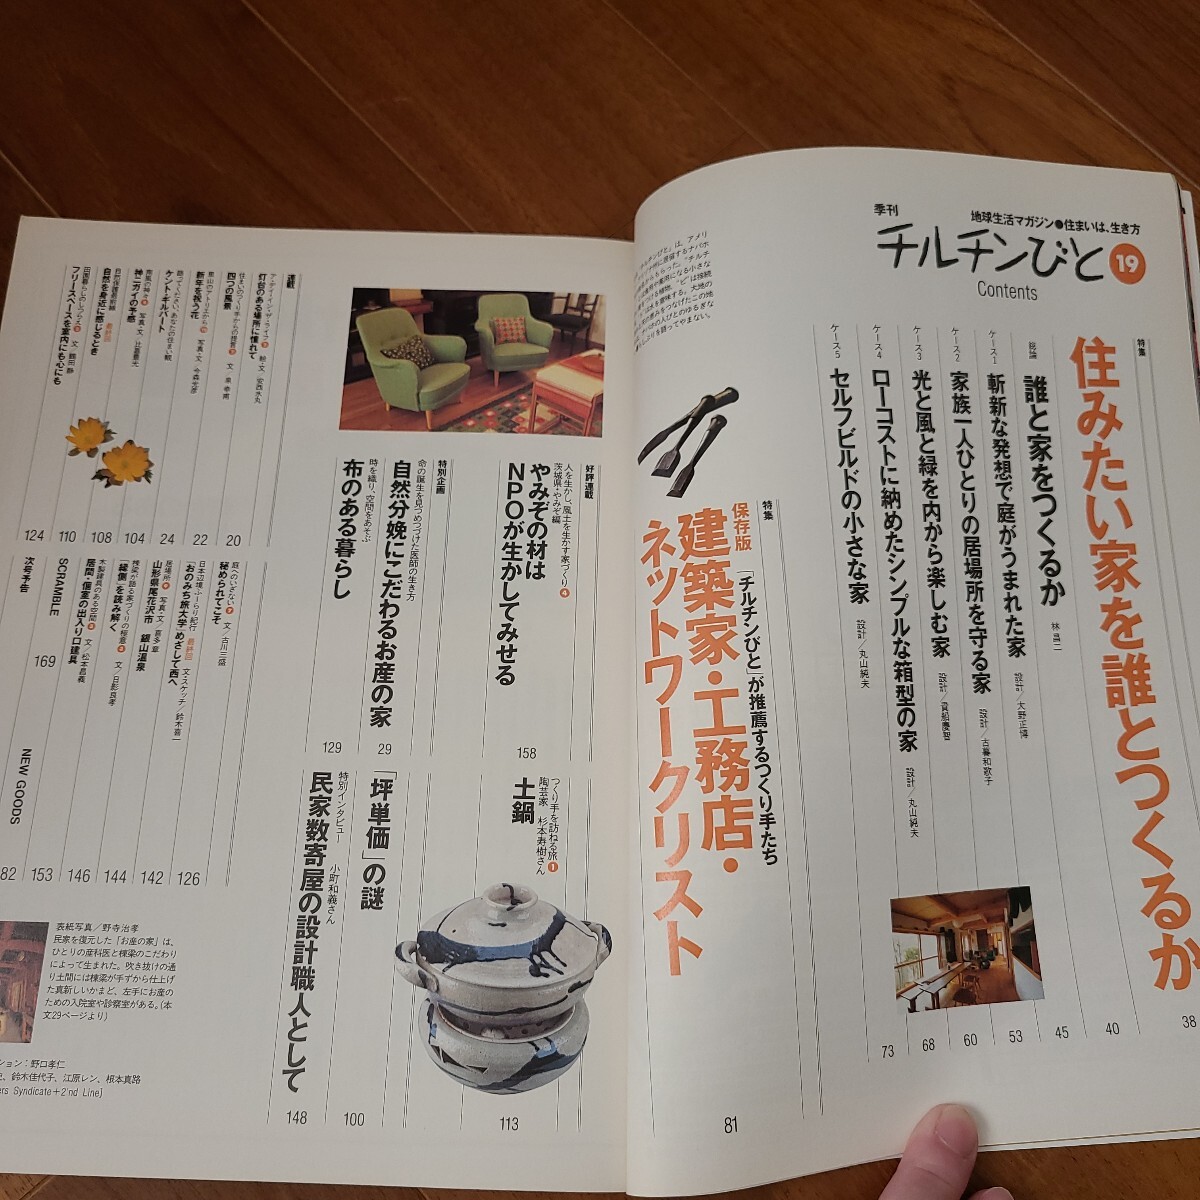 季刊
地球生活マガジン●住まいは、生き方
チルチンびと 19
Contents
特集
住みたい家を誰とつくるか
38
総論
誰と家をつくるか
林 昌二
40
ケース1
斬新な発想で庭がうまれた家
設計/大野正博
45
ケース2
家族一人ひとりの居場所を守る家
設計/古暮和歌子
53
ケース3
光と風と緑を内から楽しむ家
設計/貴船慶智
60
ケース4
ローコストに納めたシンプルな箱型の家
設計/丸山純夫
68
ケース5
セルフビルドの小さな家
設計/丸山純夫
73
特集
保存版
「チルチンびと」が推薦するつくり手たち
建築家・工務店・
ネットワークリスト
81
好評連載
人を生かし、風土を生かす家づくり4
茨城県・やみぞ編
やみぞの材は
NPOが生かしてみせる
158
つくり手を訪ねる旅1
陶芸家 杉本寿樹さん
土鍋
113
特別企画
命の誕生を見つめつづけた医師の生き方
自然分娩にこだわるお産の家
29
時を織り、空間をあそぶ
布のある暮らし
129
「坪単価」の謎
100
特別インタビュー 小町和義さん
民家数寄屋の設計職人として
148
連載
ア・デイ・イン・ザ・ライフ
灯台のある場所に憧れて
絵・文/安西水丸
20
住まいのつくり手からの提言
四つの風景
文/泉 幸甫
22
里山のアトリエから
新年を祝う花
写真・文/今森光彦
24
語ってください、あなたの住まい観
ケント・ギルバート
104
神ニガイの予感
写真・文/比嘉豊光
108
最終回
自然を身近に感じるとき
110
フリースペースを室内にも心にも
文/鶴田 静
124
庭へのいざない
秘められてこそ
文/古川三盛
126
日本辺境ふーらり紀行 最終回
「おのみち旅大学」めざして西へ
文・スケッチ/鈴木喜一
142
居場所 写真・文/喜多 章
山形県尾花沢市 銀山温泉
144
棟梁が語る家づくりの極意
「縁側」を読み解く
文/日影良孝
146
木製建具のある空間
居間・個室の出入り口建具
文/松本昌義
153
SCRAMBLE
169
NEW GOODS
82
次号予告
表紙写真/野寺治孝
民家を復元した「お産の家」は、
ひとりの産科医と棟梁のこだわり
によって生まれた。吹き抜けの通
り土間には棟梁が手ずから仕上げ
た真新しいかまど、左手にお産の
ための入院室や診察室がある。(本
文29ページより)
ション：野口孝仁
鈴木佳代子、江原レン、根本真路
ers Syndicate+2'nd Line)